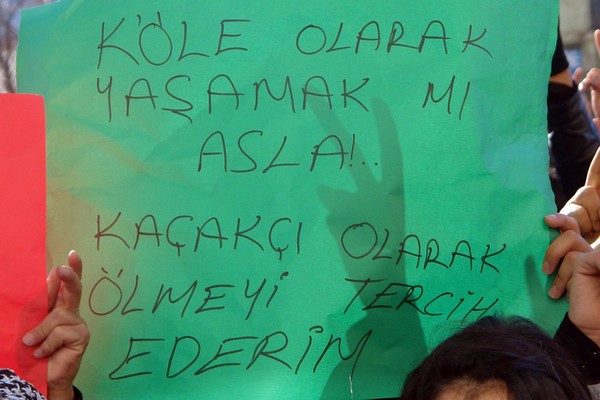 KÖLE OLARAK
YAŞAMAK MI
ASLA!..
KAÇAKÇI OLARAK
ÖLMEYİ TERCİH
EDERİM